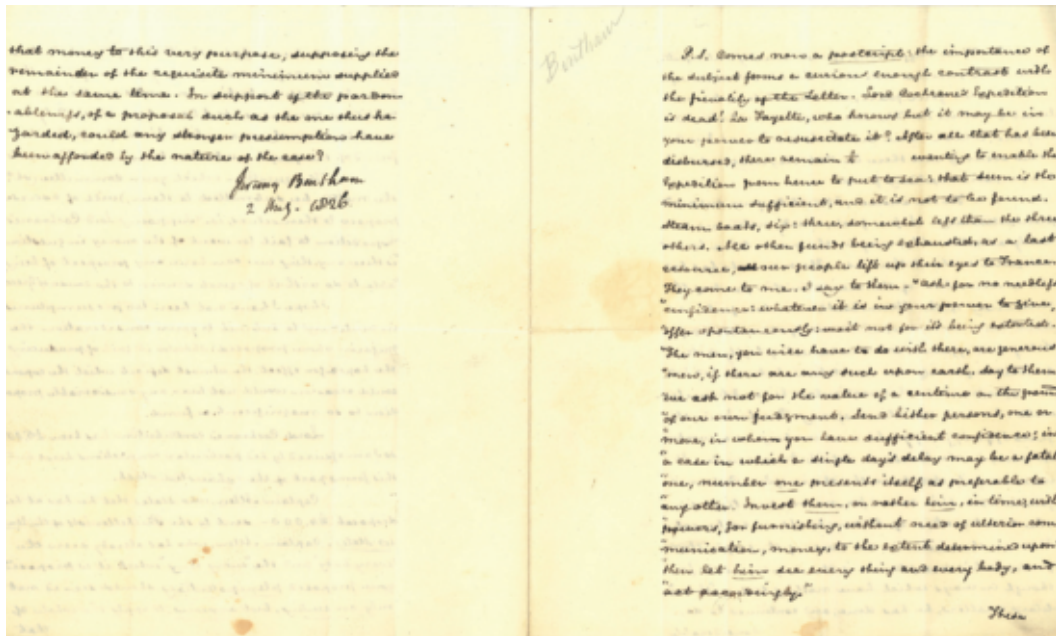 that money to this very purpose, supposing the
remainder of the requisite minimum supplied
at the same time. In support of the pardon-
-ableness, of a proposal such as the one thus ha-
zarded, could any stronger presumption have
been afforded by the nature of the case?
Jeremy Bentham
2 Aug. 1826.
Bentham
P.S. Comes now a postscript: the importance of
the subject forms a curious enough contrast with
the of the Letter. Lord Cochrane's Expedition
is dead! La Fayette, who knows but it may be in
your power to resuscitate it? After all that has been
disbursed, there remain £ wanting to enable the
Expedition from hence to put to sea: that seem is the
minimum sufficient, and it is not to be found.
Steam boats, six: three, somewhat less than the three
others. All other funds being exhausted, as a last
resource, our people lift up their eyes to France.
They come to me. I say to them. "Ask for no needless
"confidence: whatever it is in your power to give,
offer spontaneously: wait not for its being extorted.
"The men, you will have to do with there, are generous
"men, if there are any such upon earth. Say to them
we ask not for the value of a centime on the
"of our own judgment. Send hither persons, one or
more, in whom you have sufficient confidence; in
"a case in which a single day's delay may be a fatal
"one, number one presents itself as preferable to
any other. Invest them, or rather him, in time, with
"powers, for furnishing, without need of ulterior com-
"munication, money, to the extent determined upon
then let him see every thing and every body, and
"act accordingly."
These